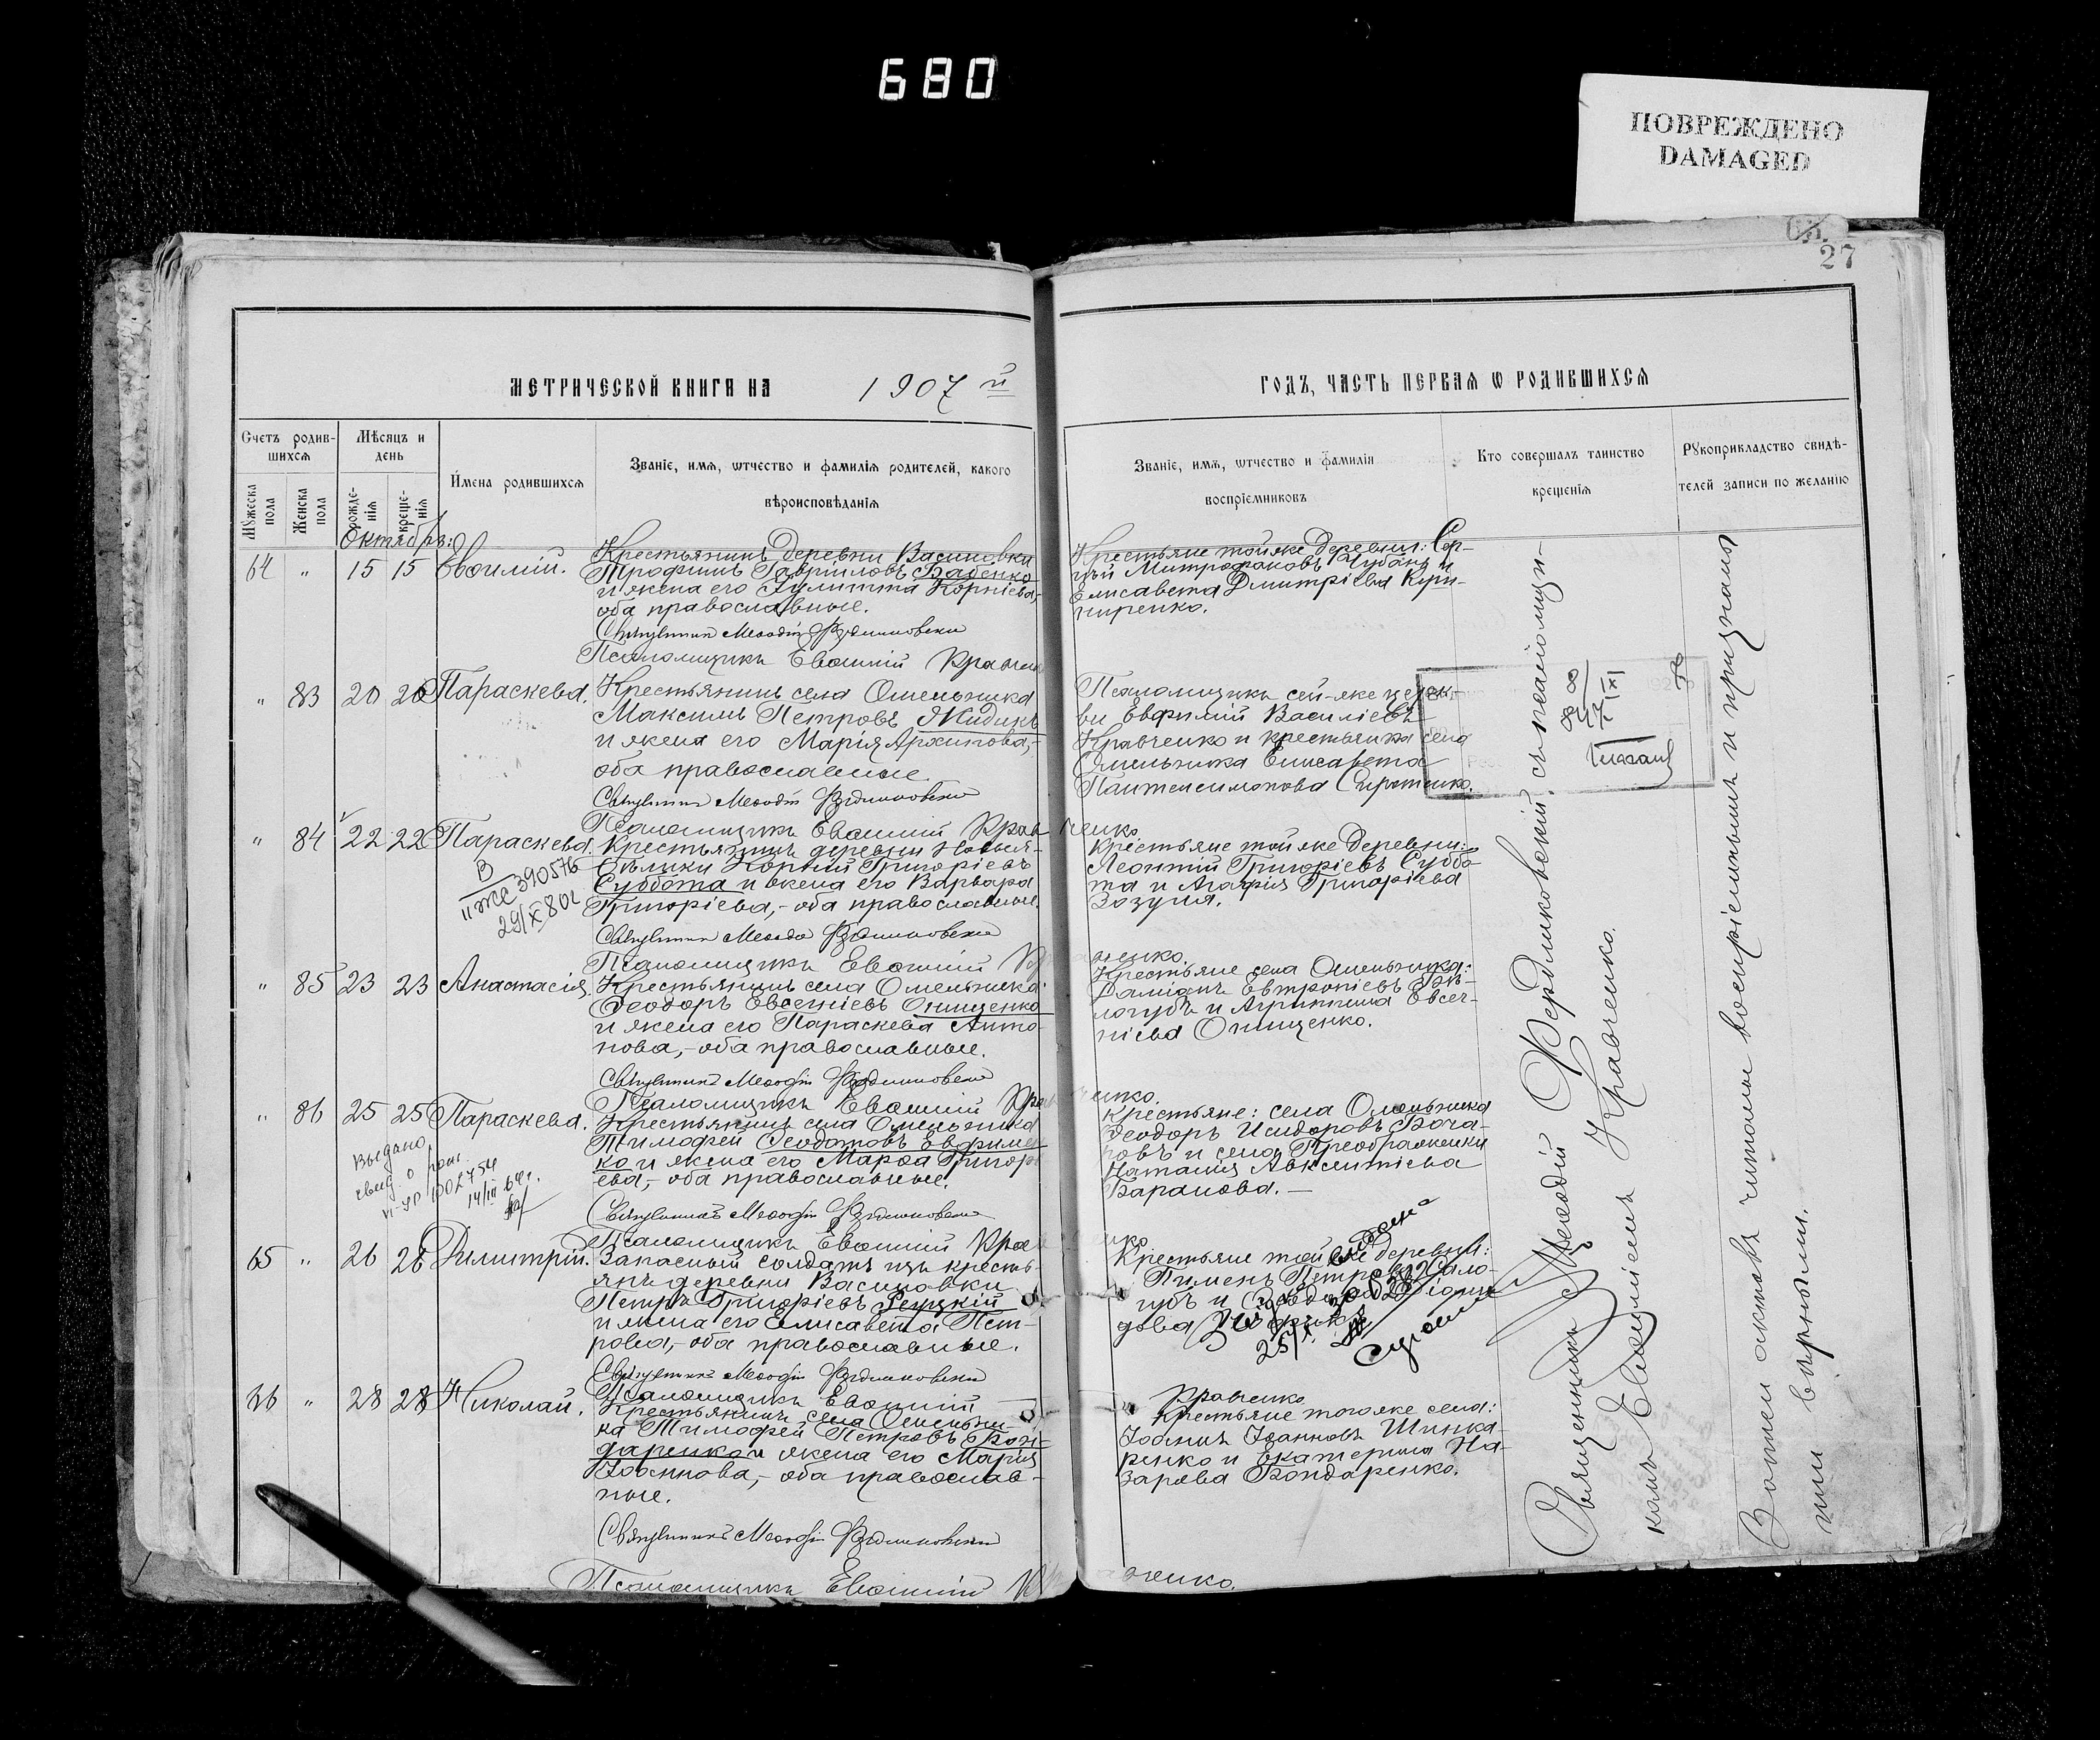 680
ПОВРЕЖДЕНО
DAMAGED
27
МЕТРИЧЕСКОЙ КНИГИ НА 1907 й
ГОДЪ, ЧАСТЬ ПЕРВАЯ Ѡ РОДИВШИХСЯ
Счетъ родив-
шихся
Мѣсяцъ и
день
Мужеска пола
Женска пола
рожде-
нія
креще-
нія
Имена родившихся
Званіе, имя, ѡтчество и фамилія родителей, какого
вѣроисповѣданія
Званіе, имя, ѡтчество и фамилія
воспріемниковъ
Кто совершалъ таинство
крещенія
Рукоприкладство свидѣ-
телей записи по желанію
Октябрь:
64 " 15 15 Евѳимій.
Крестьянинъ деревни Васиновки
Трофимъ Гавріиловъ Баденко
и жена его Іулитта Корніева,-
оба православные.
Священникъ Меѳодій Фердликовскій
Псаломщикъ Евѳимій Кравченко
Крестьяне тойже деревни: Сер-
гій Митрофановъ Чубанъ и
Елисавета Димитріева Куш-
ниренко.
" 83 20 20 Параскева.
Крестьянинъ села Омельника
Максимъ Петровъ Жидикъ
и жена его Марія Архипова,-
оба православные.
Священникъ Меѳодій Фердликовскій
Псаломщикъ Евѳимій Кравченко
Псаломщикъ сей-же церк-
ви Евфимій Василіевъ
Кравченко и крестьянка села
Омельника Елисавета
Пантелеимонова Сиротенко.
" 84 22 22 Параскева.
В
II ЖС 390576
Крестьянинъ деревни Новыя-
Бѣлики Корній Григоріевъ
Суббота и жена его Варвара
Григоріева,- оба православные.
Священникъ Меѳодій Фердликовскій
Псаломщикъ Евѳимій Кравченко.
Крестьяне тойже деревни:
Леонтій Григоріевъ Суббо-
та и Агафія Григоріева
Зозуля.
" 85 23 23 Анастасія.
Крестьянинъ села Омельника
Ѳеодоръ Евсегніевъ Онищенко
и жена его Параскева Анто-
нова,- оба православные.
Священникъ Меѳодій Фердликовскій
Псаломщикъ Евѳимій Кравченко.
Крестьяне села Омельника:
Даміанъ Евтропіевъ Бѣ-
логубъ и Агриппина Евсег-
ніева Онищенко.
" 86 25 25 Параскева.
Выдано
свид. о рож.
14/III
Крестьянинъ села Омельника
Тимофей Ѳеодотовъ Евфимен-
ко и жена его Марѳа Григорі-
ева,- оба православные.
Священникъ Меѳодій Фердликовскій
Псаломщикъ Евѳимій Кравченко
Крестьяне: села Омельника
Ѳеодоръ Исидоровъ Боча-
ровъ и села Преображенки
Наталія Авксентіева
Баранова.-
65 " 26 26 Димитрій.
Запасный солдатъ изъ кресть-
янъ деревни Васиновки
Петръ Григоріевъ Рецкій
и жена его Елисавета Пет-
рова,- оба православные.
Священникъ Меѳодій Фердликовскій
Псаломщикъ Евѳимій Кравченко
Крестьяне тойже деревни:
Пименъ Петровъ
66 " 28 28 Николай.
Крестьянинъ села Омельни-
ка Тимофей Петровъ Бон-
даренко и жена его Марія
Іоаннова,- оба православ-
ные.
Священникъ Меѳодій Фердликовскій
Псаломщикъ Евѳимій Кравченко.
Крестьяне тогоже села:
Іоаннъ Іоанновъ Шинка-
ренко и Екатерина На-
зарова Бондаренко.
Священникъ Меѳодій Фердликовскій съ псаломщи-
комъ Евѳиміемъ Кравченко.